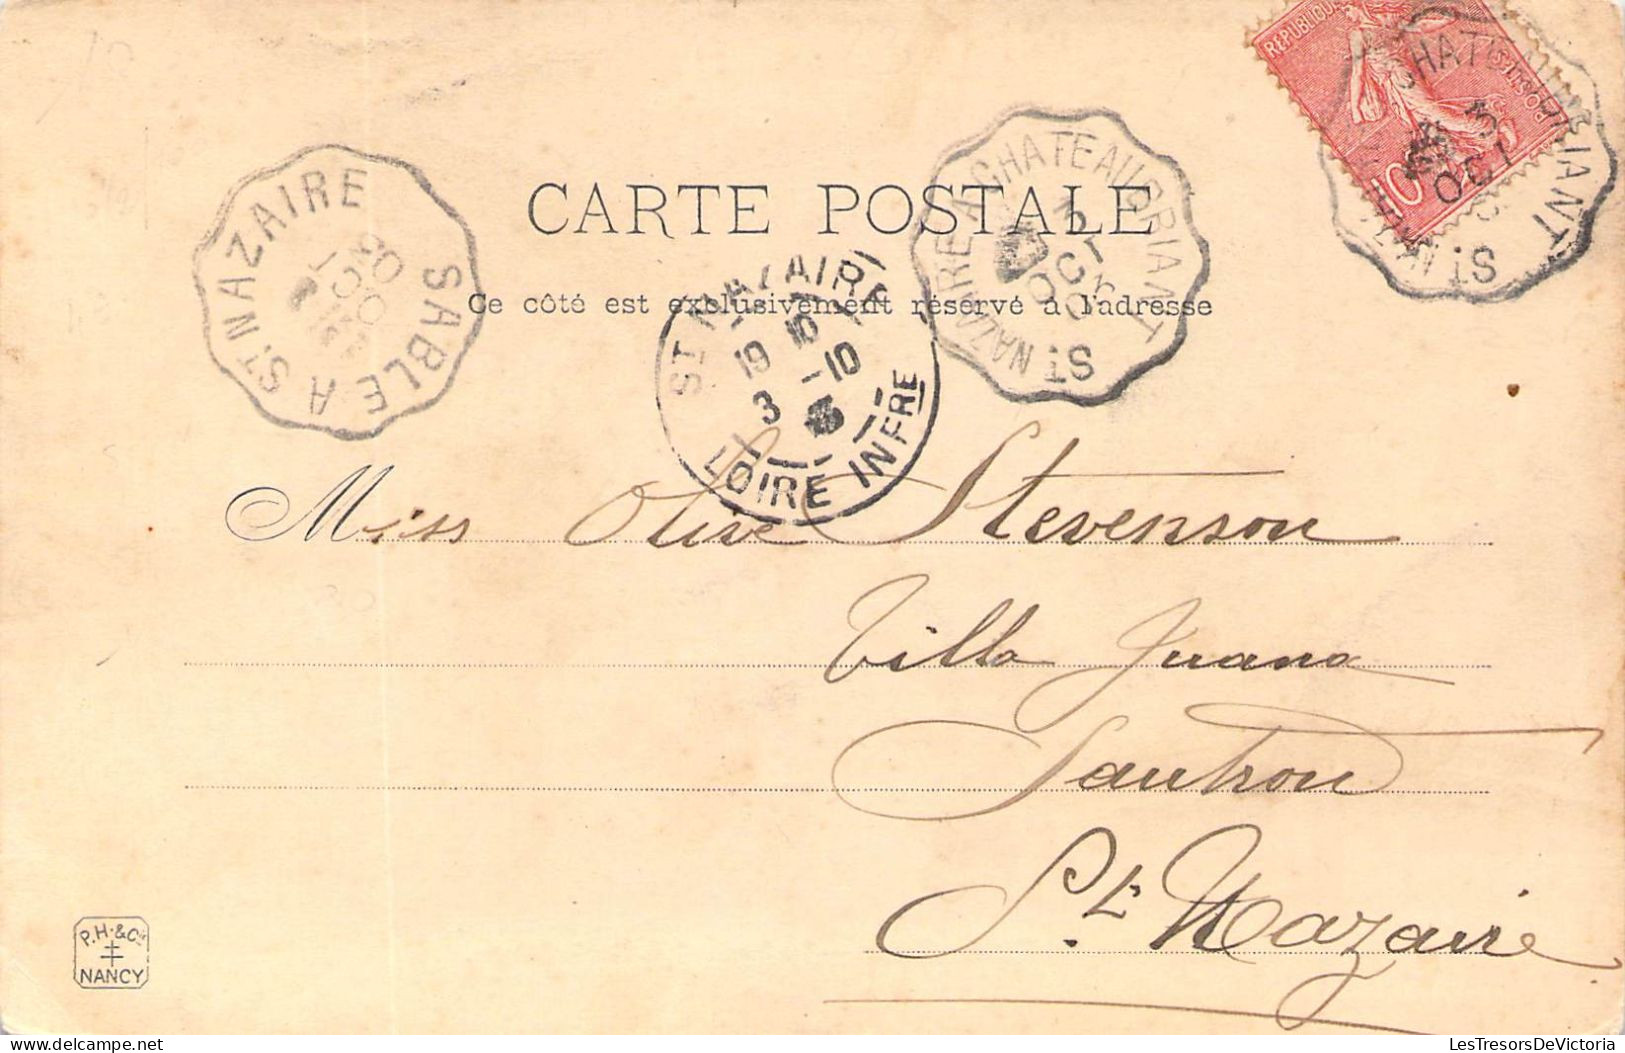 RÉPUBLIQUE
POSTES
10
CHATEAUBRIANT
ST NAZAIRE
3
OCT
CARTE POSTALE
Ce côté est exclusivement réservé à l'adresse
SABLE A ST NAZAIRE
ST NAZAIRE
19 10
3 -10
LOIRE INFRE
ST NAZAIRE A CHATEAUBRIANT
3
OCT
Miss Olive Stevenson
Villa Juana
Sautron
St. Nazaire
P.H. & Cie
NANCY
LesTresorsDeVictoria